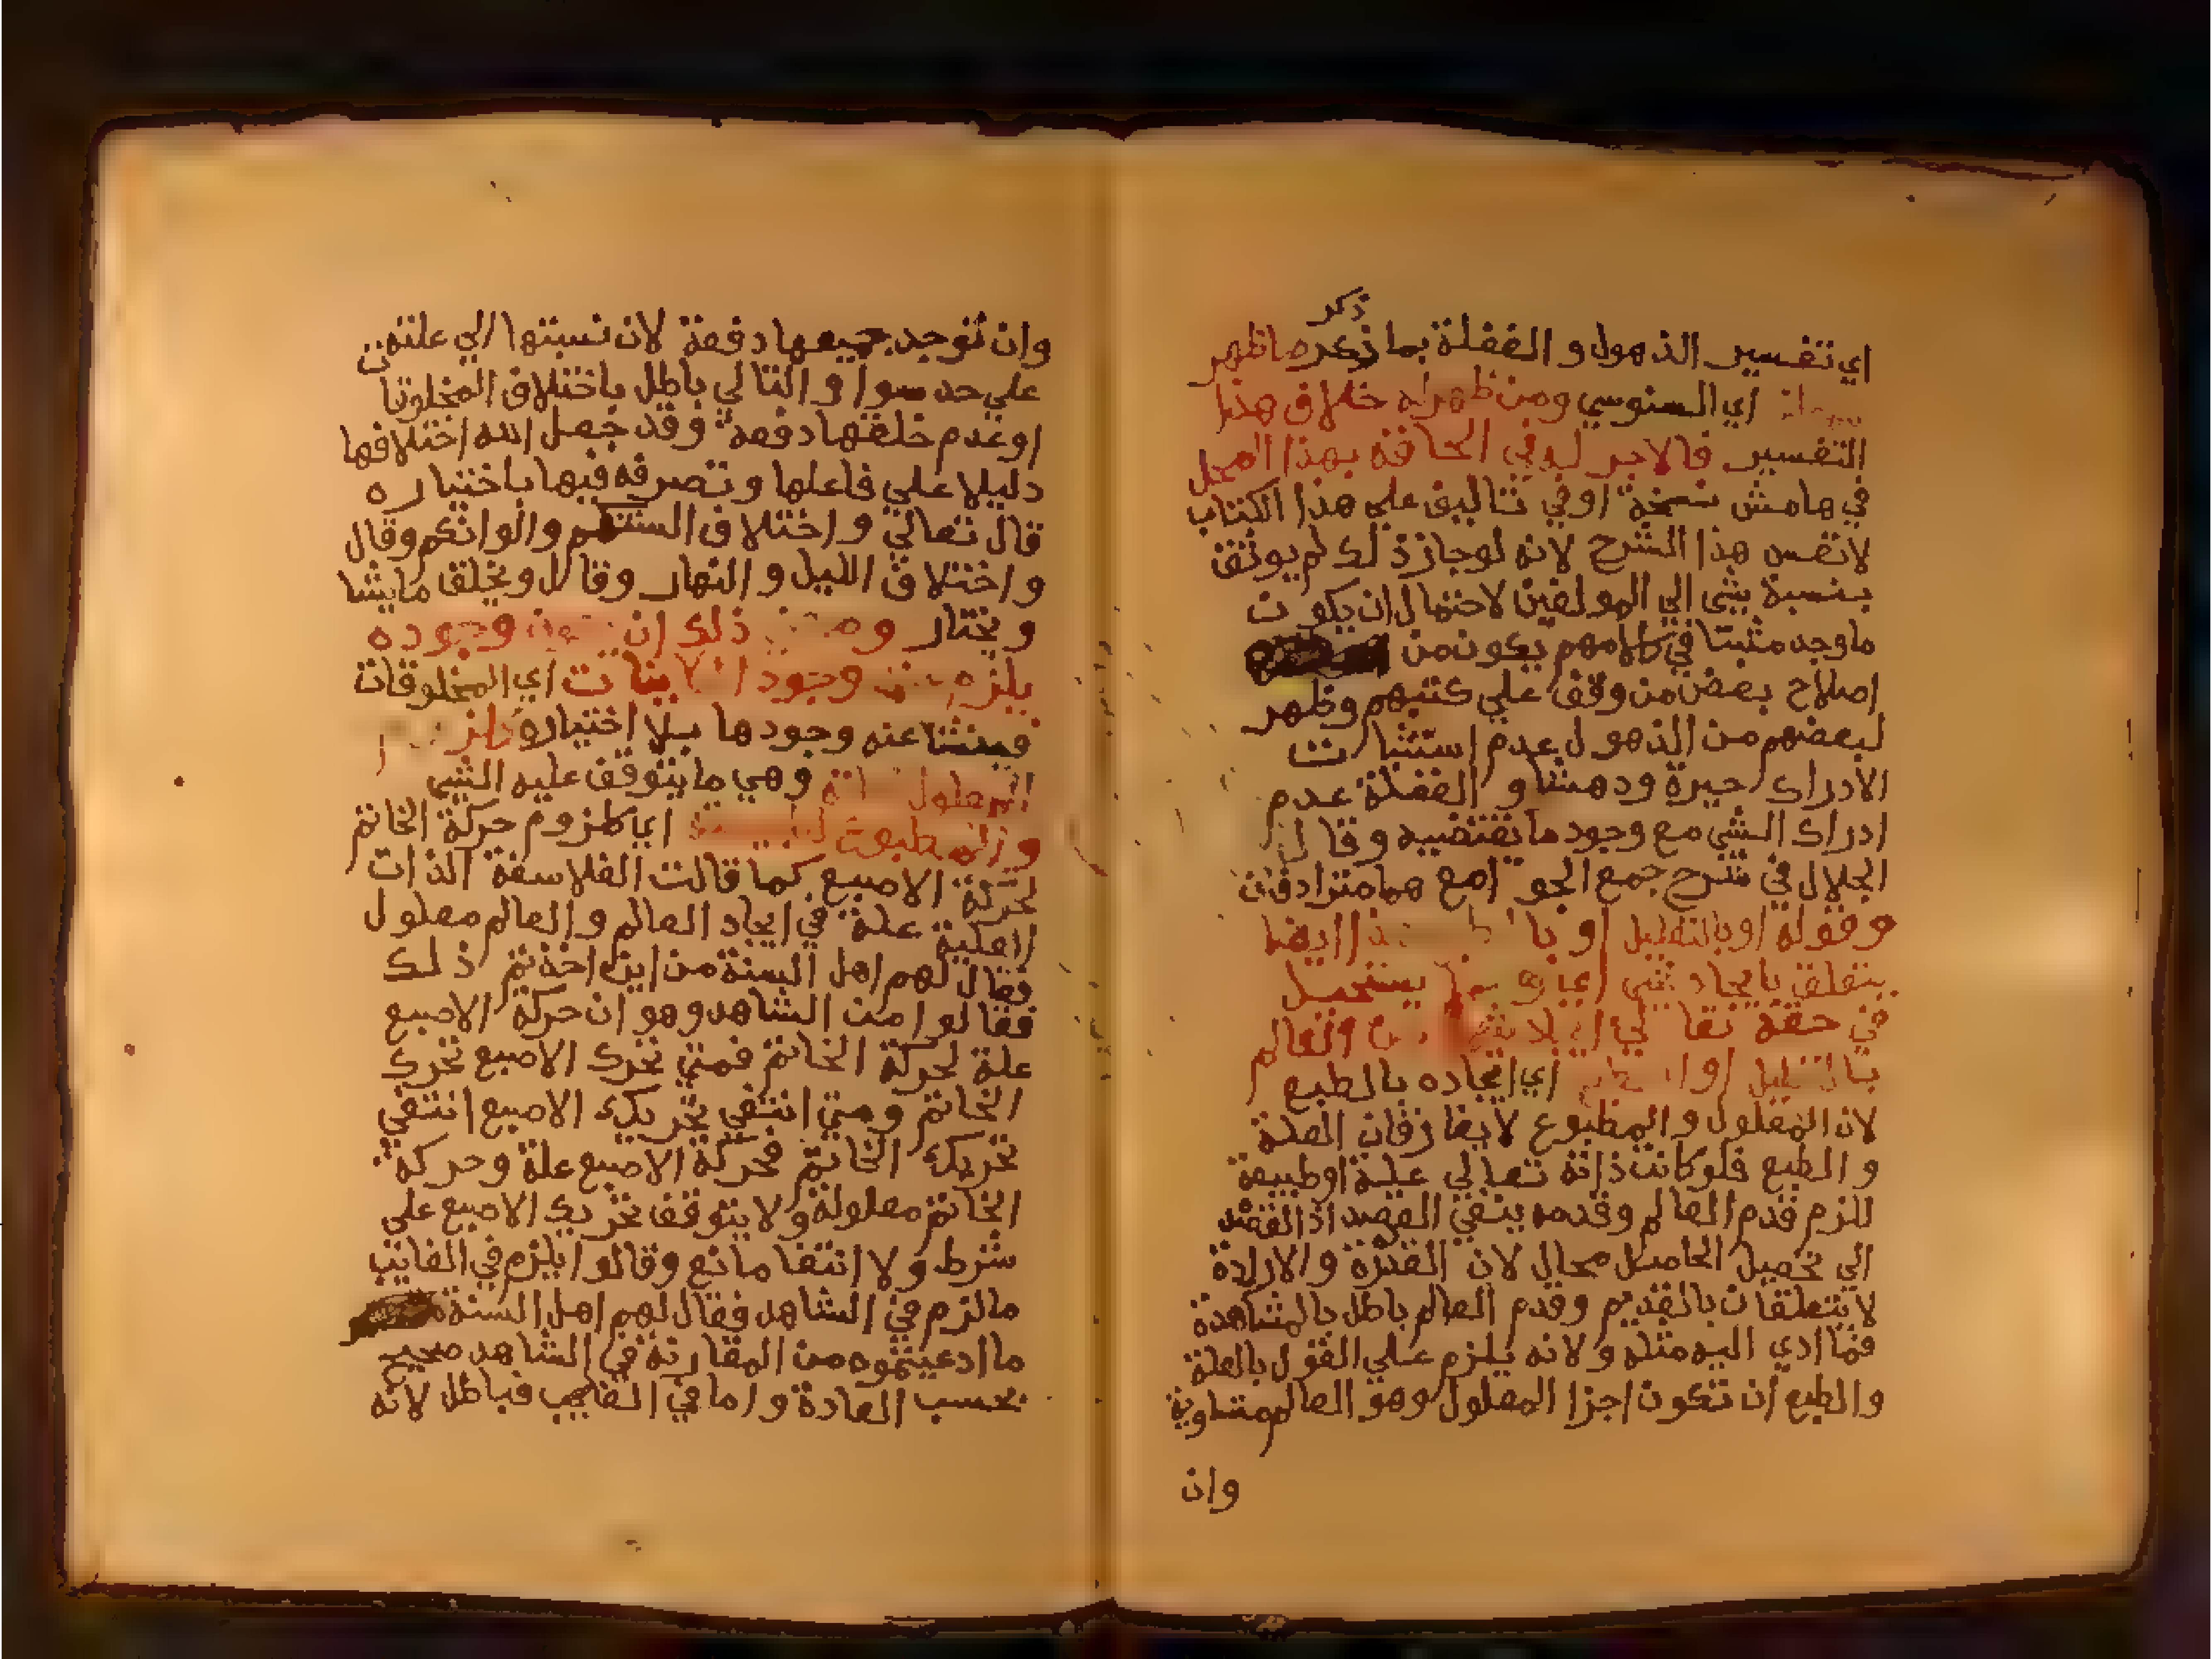 ذكر
اي تفسير الذهول و الغفلة بما ذكر ما ظهر
اي السنوسي ومن ظهر له خلاف هذا
التفسير فالاجر له في الحاقه بهذا المحل
في هامش نسخة اوفي تاليف علي هذا الكتاب
لا نفس هذا الشرح لانه لو جاز ذلك لم يوثق
بنسبة شي الي المولفين لاحتمال ان يكون
ما وجد مثبتا في كلامهم يكون من
اصلاح بعض من وقف علي كتبهم وظهر
لبعضهم من الذهول عدم استثبات
الادراك حيرة ودهشا و الغفلة عدم
ادراك الشي مع وجود ما يقتضيه وقال
الجلال في شرح جمع الجوامع هما مترادفان
وقوله او بالتعليل او با ايضا
يتعلق بايجاد شي اي يستحيل
في حقه تعالي من العالم
بالتعليل او اي ايجاده بالطبع
لان المعلول و المطبوع لا يفارقان العلة
و الطبع فلو كانت ذاته تعالي علة او طبيعة
للزم قدم العالم وقدمه ينفي القصد اذ القصد
الي تحصيل الحاصل محال لان القدرة و الارادة
لا يتعلقان بالقديم وقدم العالم باطل بالمشاهدة
فما ادي اليه مثله و لانه يلزم علي القول بالعلة
والطبع ان تكون اجزا المعلول وهو العالم متساوية
وان
وان توجد جميعها دفعة لان نسبتها الي علته
علي حد سوا و التالي باطل باختلاف المخلوقات
او عدم خلقها دفعة وقد جعل الله اختلافها
دليلا علي فاعلها وتصرفه فيها باختياره
قال تعالي واختلاف السنتكم والوانكم وقال
واختلاف الليل و النهار وقال ويخلق ما يشا
ويختار و ذلك ان وجوده
يلزم وجود الكاينات اي المخلوقات
فينشا عنه وجودها بلا اختيار
المعلول وهي ما يتوقف عليه الشي
و اي كلزوم حركة الخاتم
لحركة الاصبع كما قالت الفلاسفة الذات
العلية علة في ايجاد العالم و العالم معلول
فقال لهم اهل السنة من اين اخذتم ذلك
فقالوا من الشاهد وهو ان حركة الاصبع
علة لحركة الخاتم فمتي تحرك الاصبع تحرك
الخاتم ومتي انتفي تحريك الاصبع انتفي
تحريك الخاتم فحركة الاصبع علة وحركة
الخاتم معلولة ولا يتوقف تحريك الاصبع علي
شرط ولا انتفا مانع وقالوا يلزم في الغايب
ما لزم في الشاهد فقال لهم اهل السنة
ما ادعيتموه من المقارنة في الشاهد صحيح
بحسب العادة واما في الغايب فباطل لانه